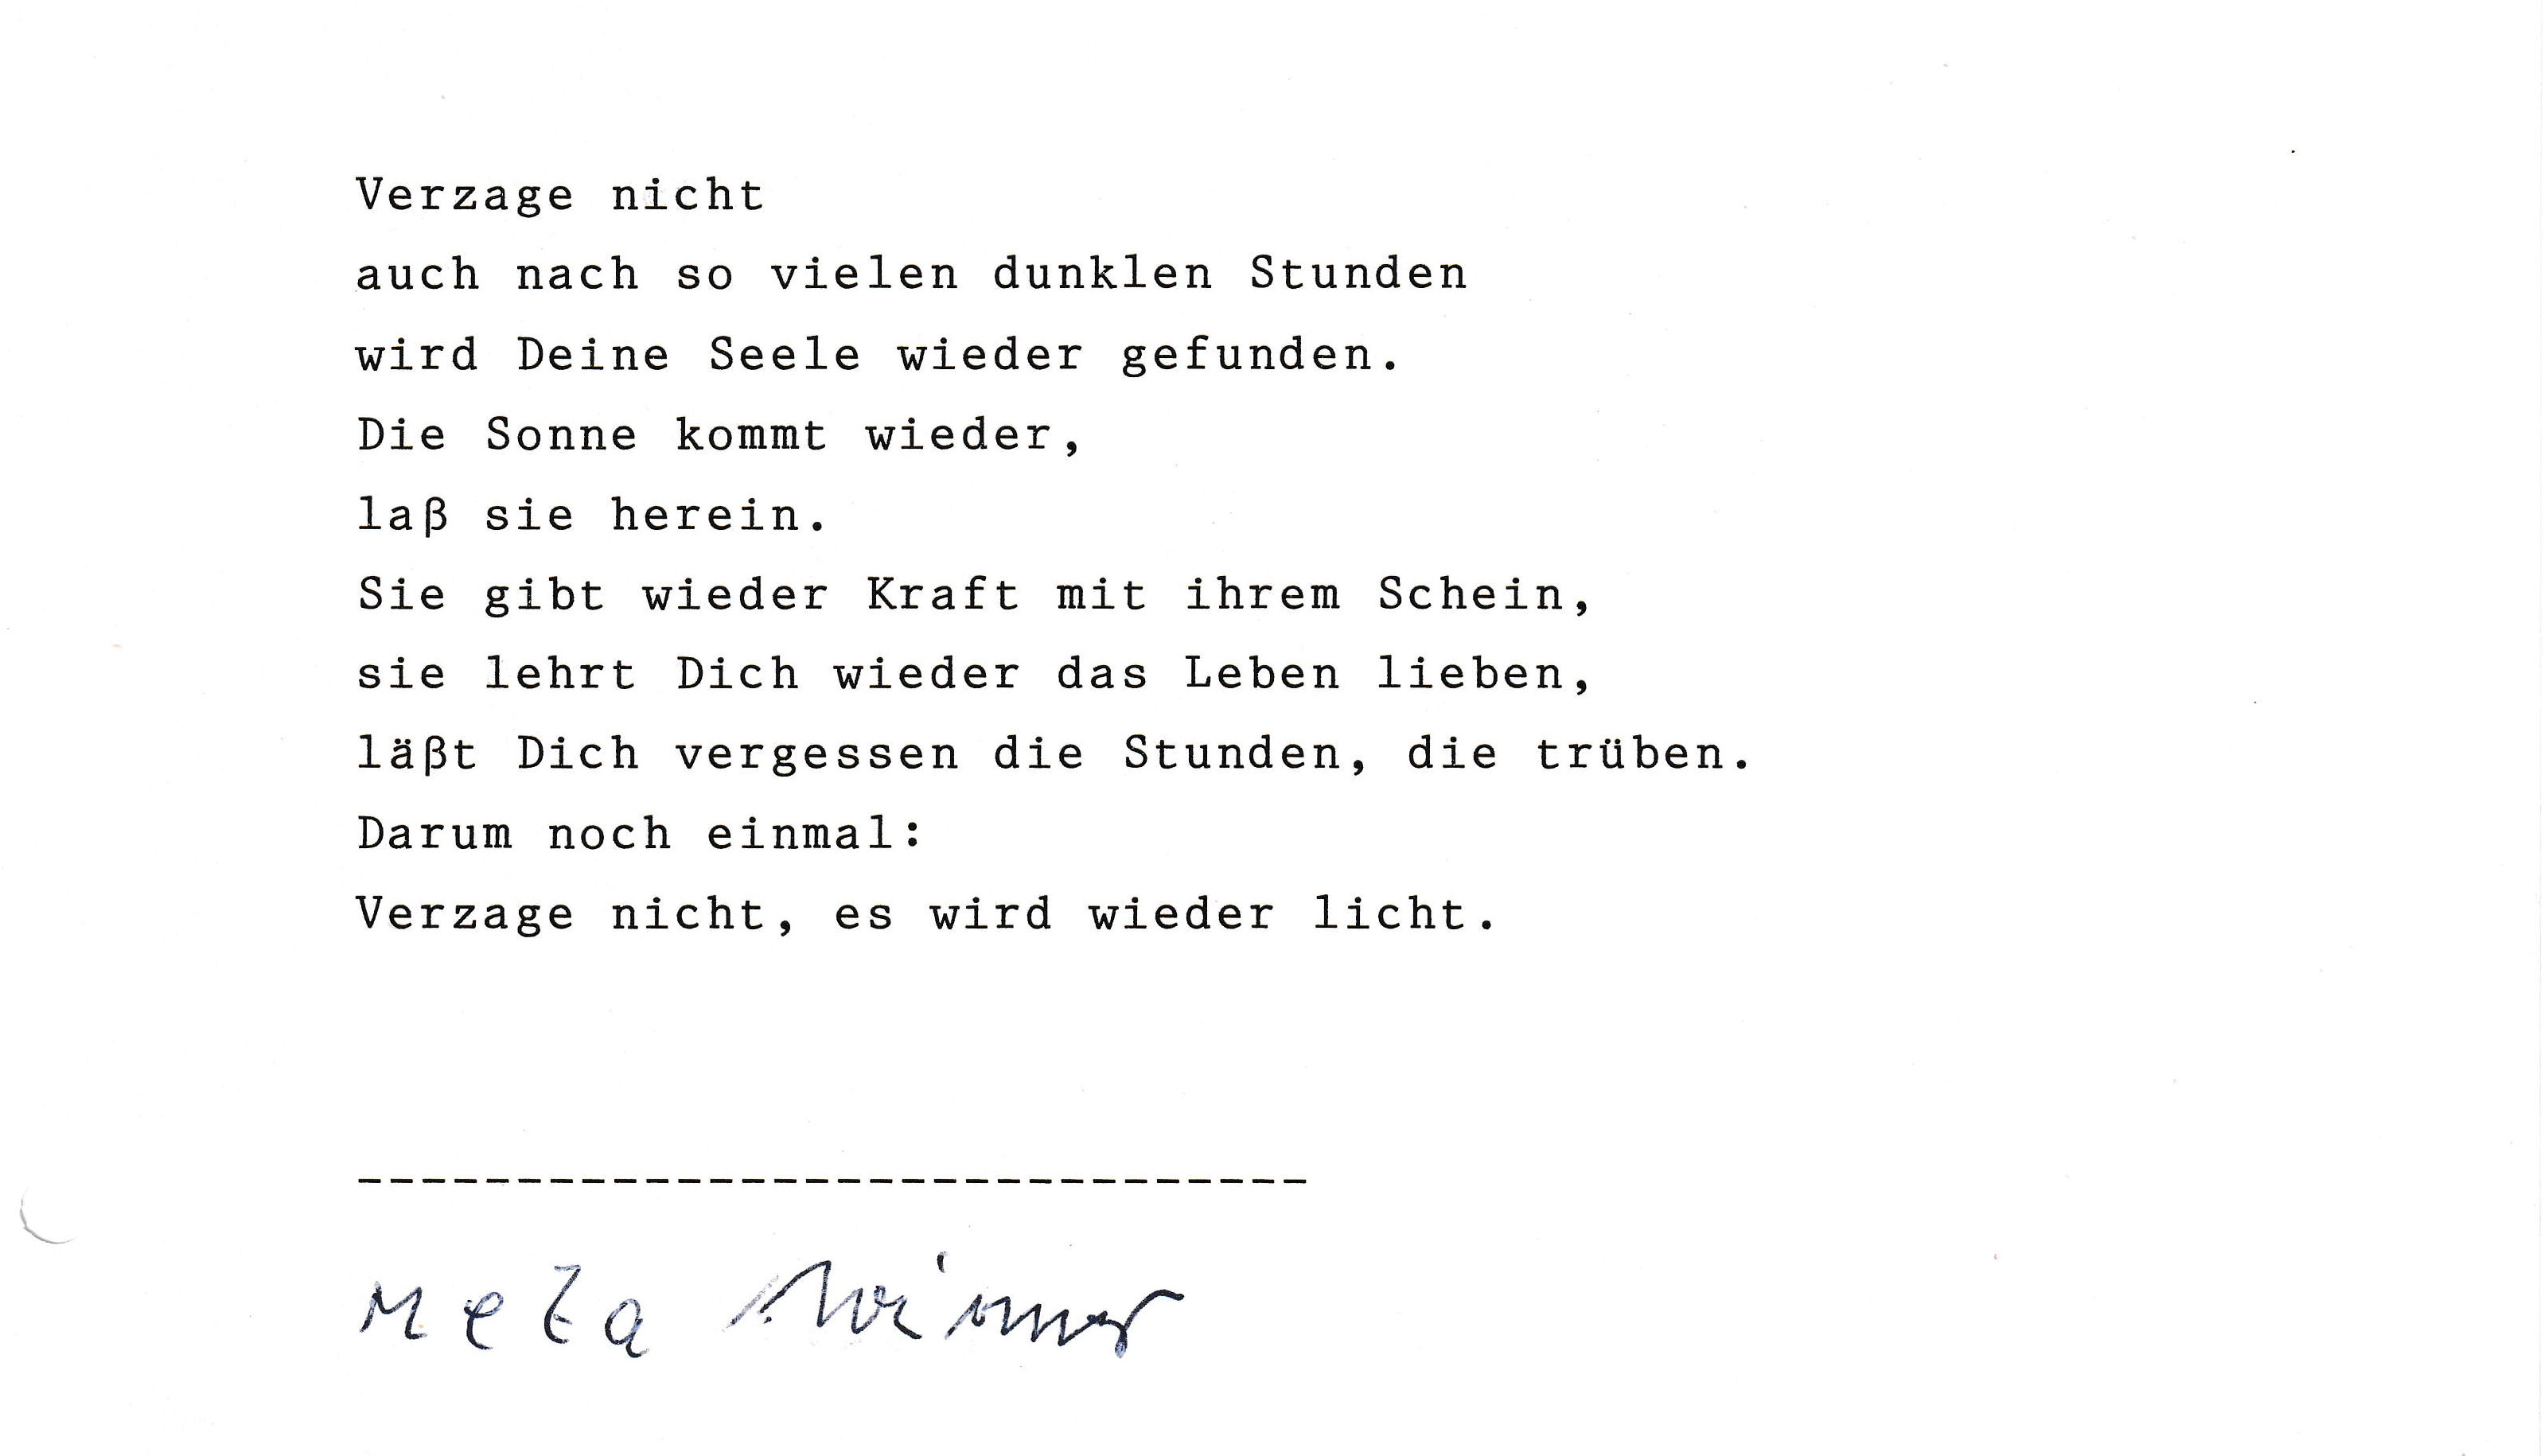 Verzage nicht
auch nach so vielen dunklen Stunden
wird Deine Seele wieder gefunden.
Die Sonne kommt wieder,
laß sie herein.
Sie gibt wieder Kraft mit ihrem Schein,
sie lehrt Dich wieder das Leben lieben,
läßt Dich vergessen die Stunden, die trüben.
Darum noch einmal:
Verzage nicht, es wird wieder licht.
------------------------------
Meta